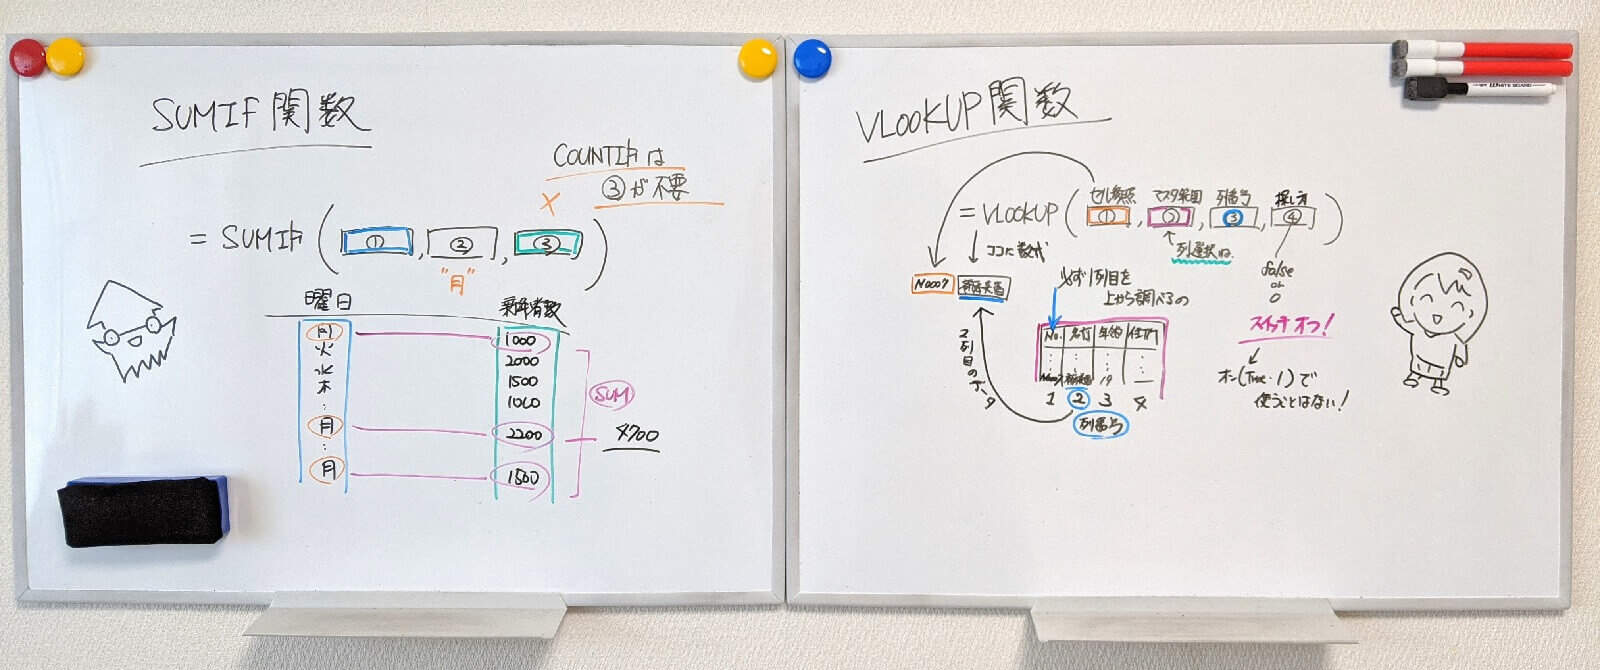 SUMIF関数
COUNTIFは
③が不要
×
= SUMIF( ① , ② , ③ )
"月"
曜日
乗降者数
月 1000
火 2000
水 1500
木 1000
:
月 2200
:
月 1500
SUM
4700
VLOOKUP関数
セル参照 マスタ範囲 列番号 探し方
= VLOOKUP( ① , ② , ③ , ④ )
ココに数式
列選択ね
false
or
0
N0007
必ず1列目を
上から調べるの
スイッチオフ!
オン(True・1)で
使うことはない!
2列目のデータ
No. 名前 年齢
: : : :
19 —
1 2 3 4
列番号
WHITE BOARD